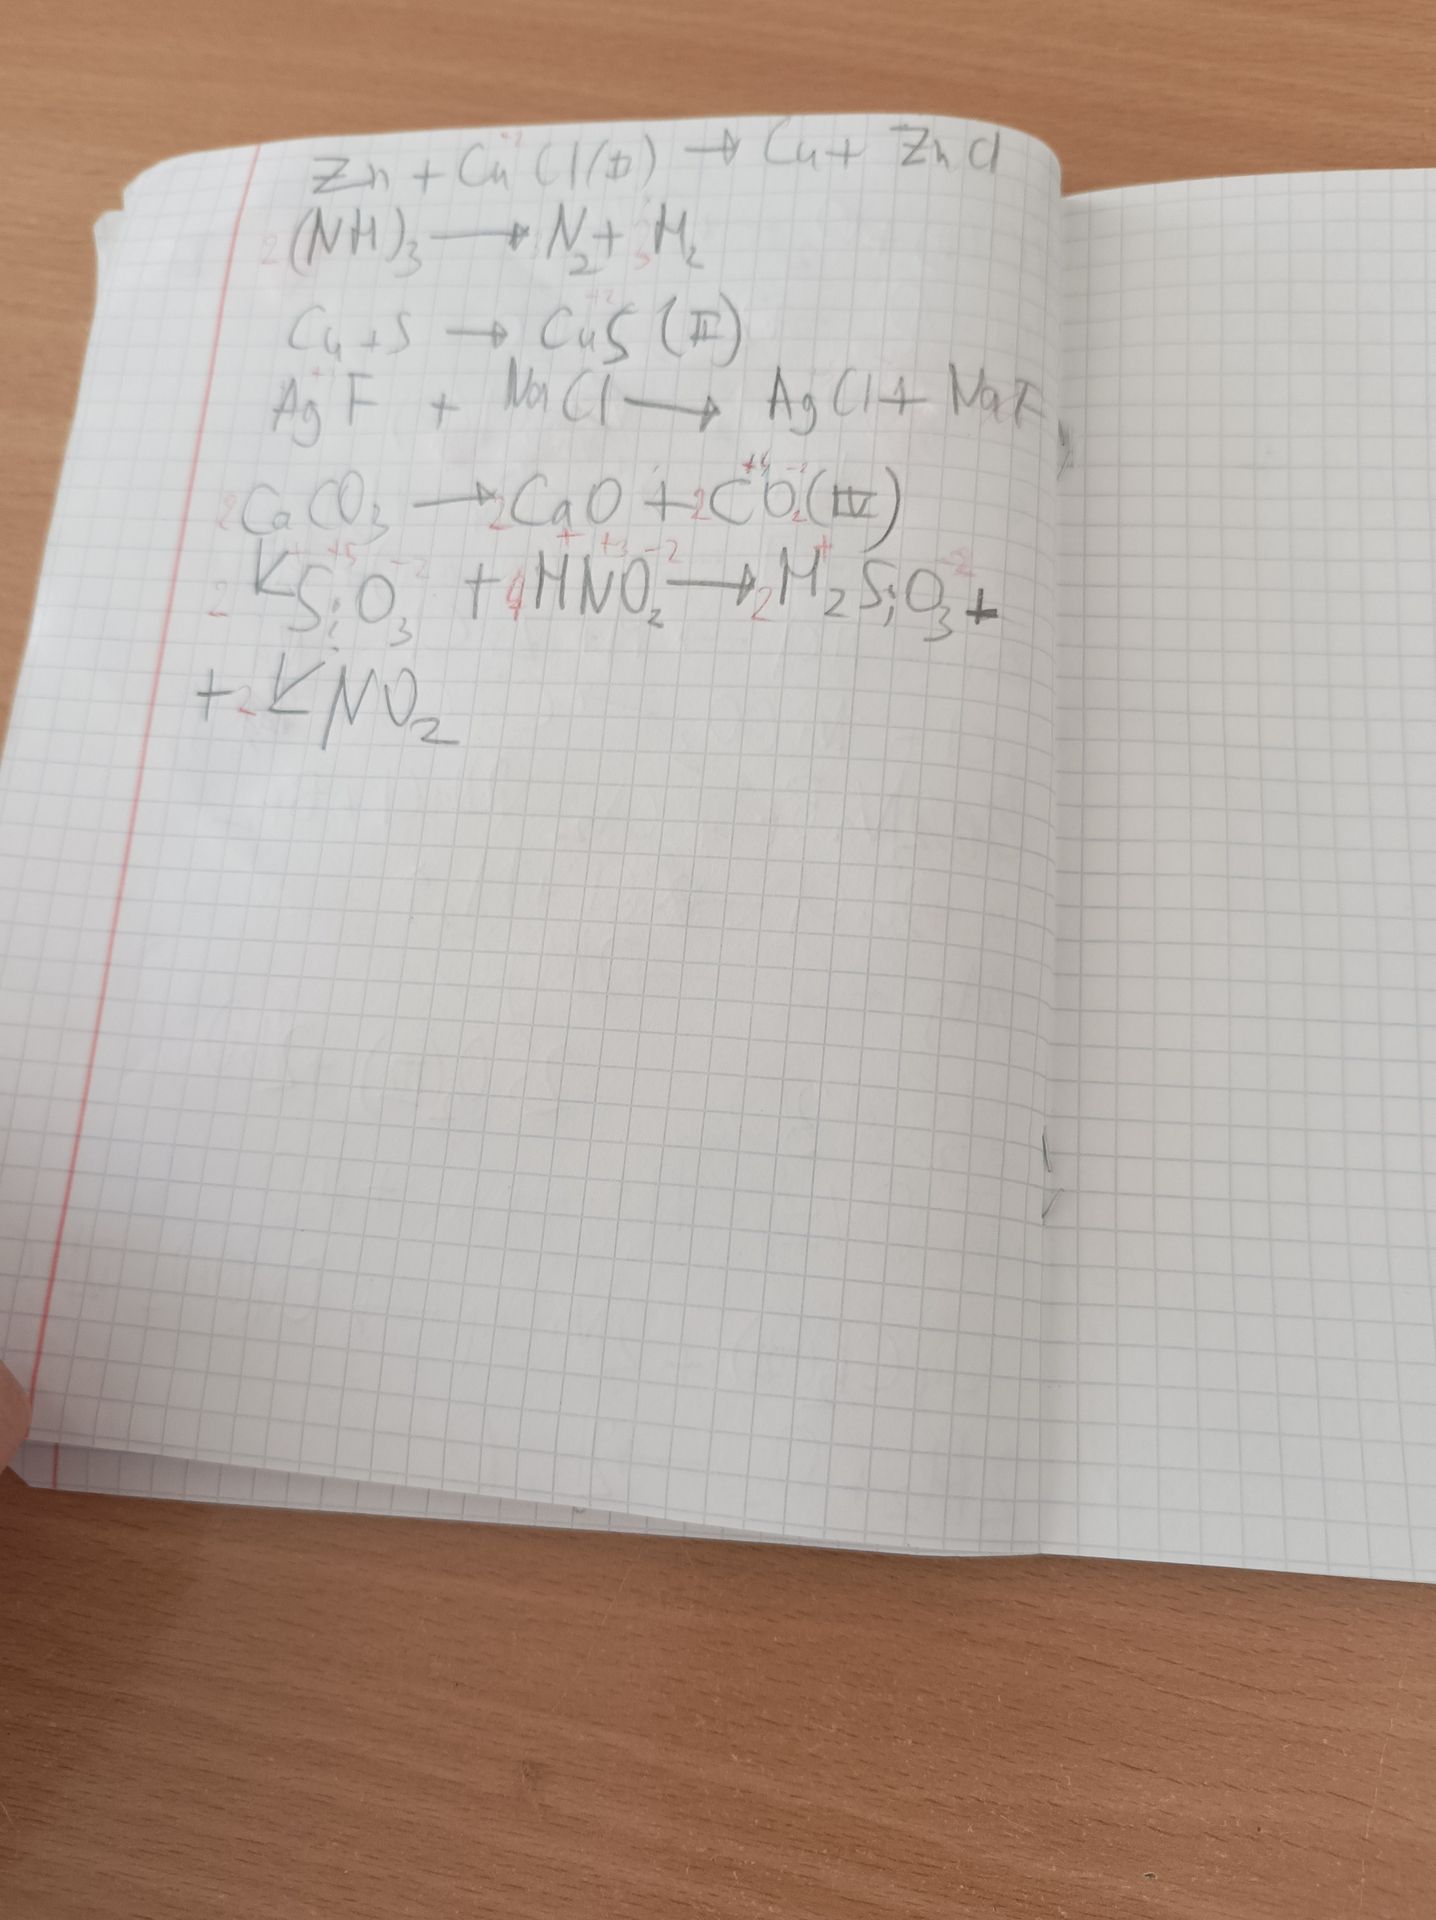 Zn + Cu⁺² Cl(II) → Cu + Zn Cl
2 (NH)₃ → N₂ + 3 H₂
Cu + S → Cu⁺²S (II)
Ag⁺ F + Na Cl → Ag Cl + Na F
2 Ca CO₃ → 2 CaO + 2 C⁺⁴O⁻²₂ (IV)
2 K⁺Si⁺⁵O₃⁻² + 4 H⁺N⁺³O₂⁻² → 2 H⁺₂SiO₃⁻² +
+ 2 KNO₂